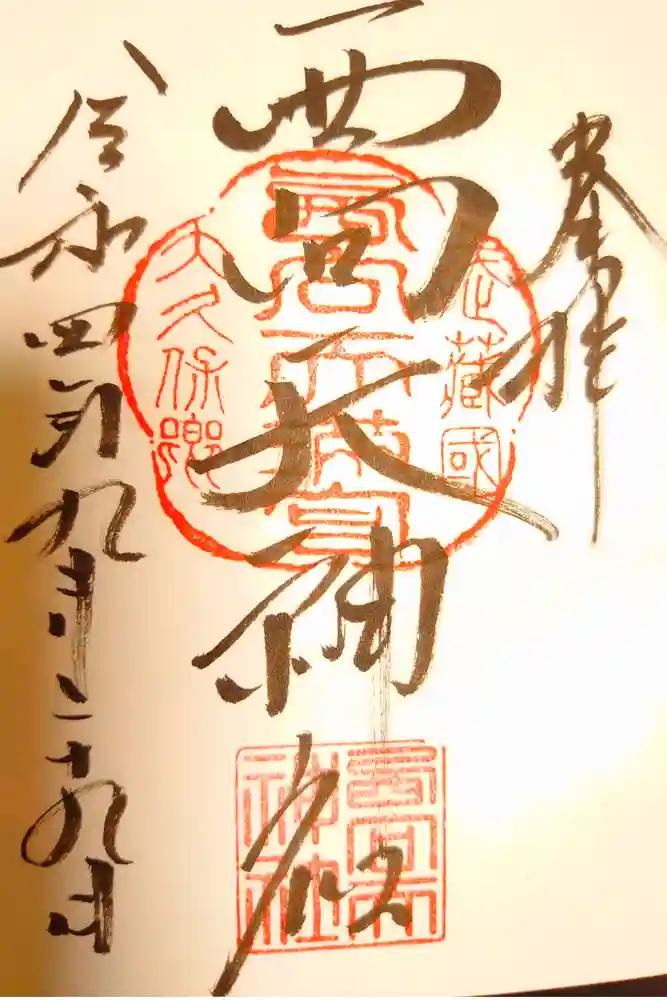 奉拝
西向天神社
令和四年九月二十九日
武藏國
大久保
西向天
神社